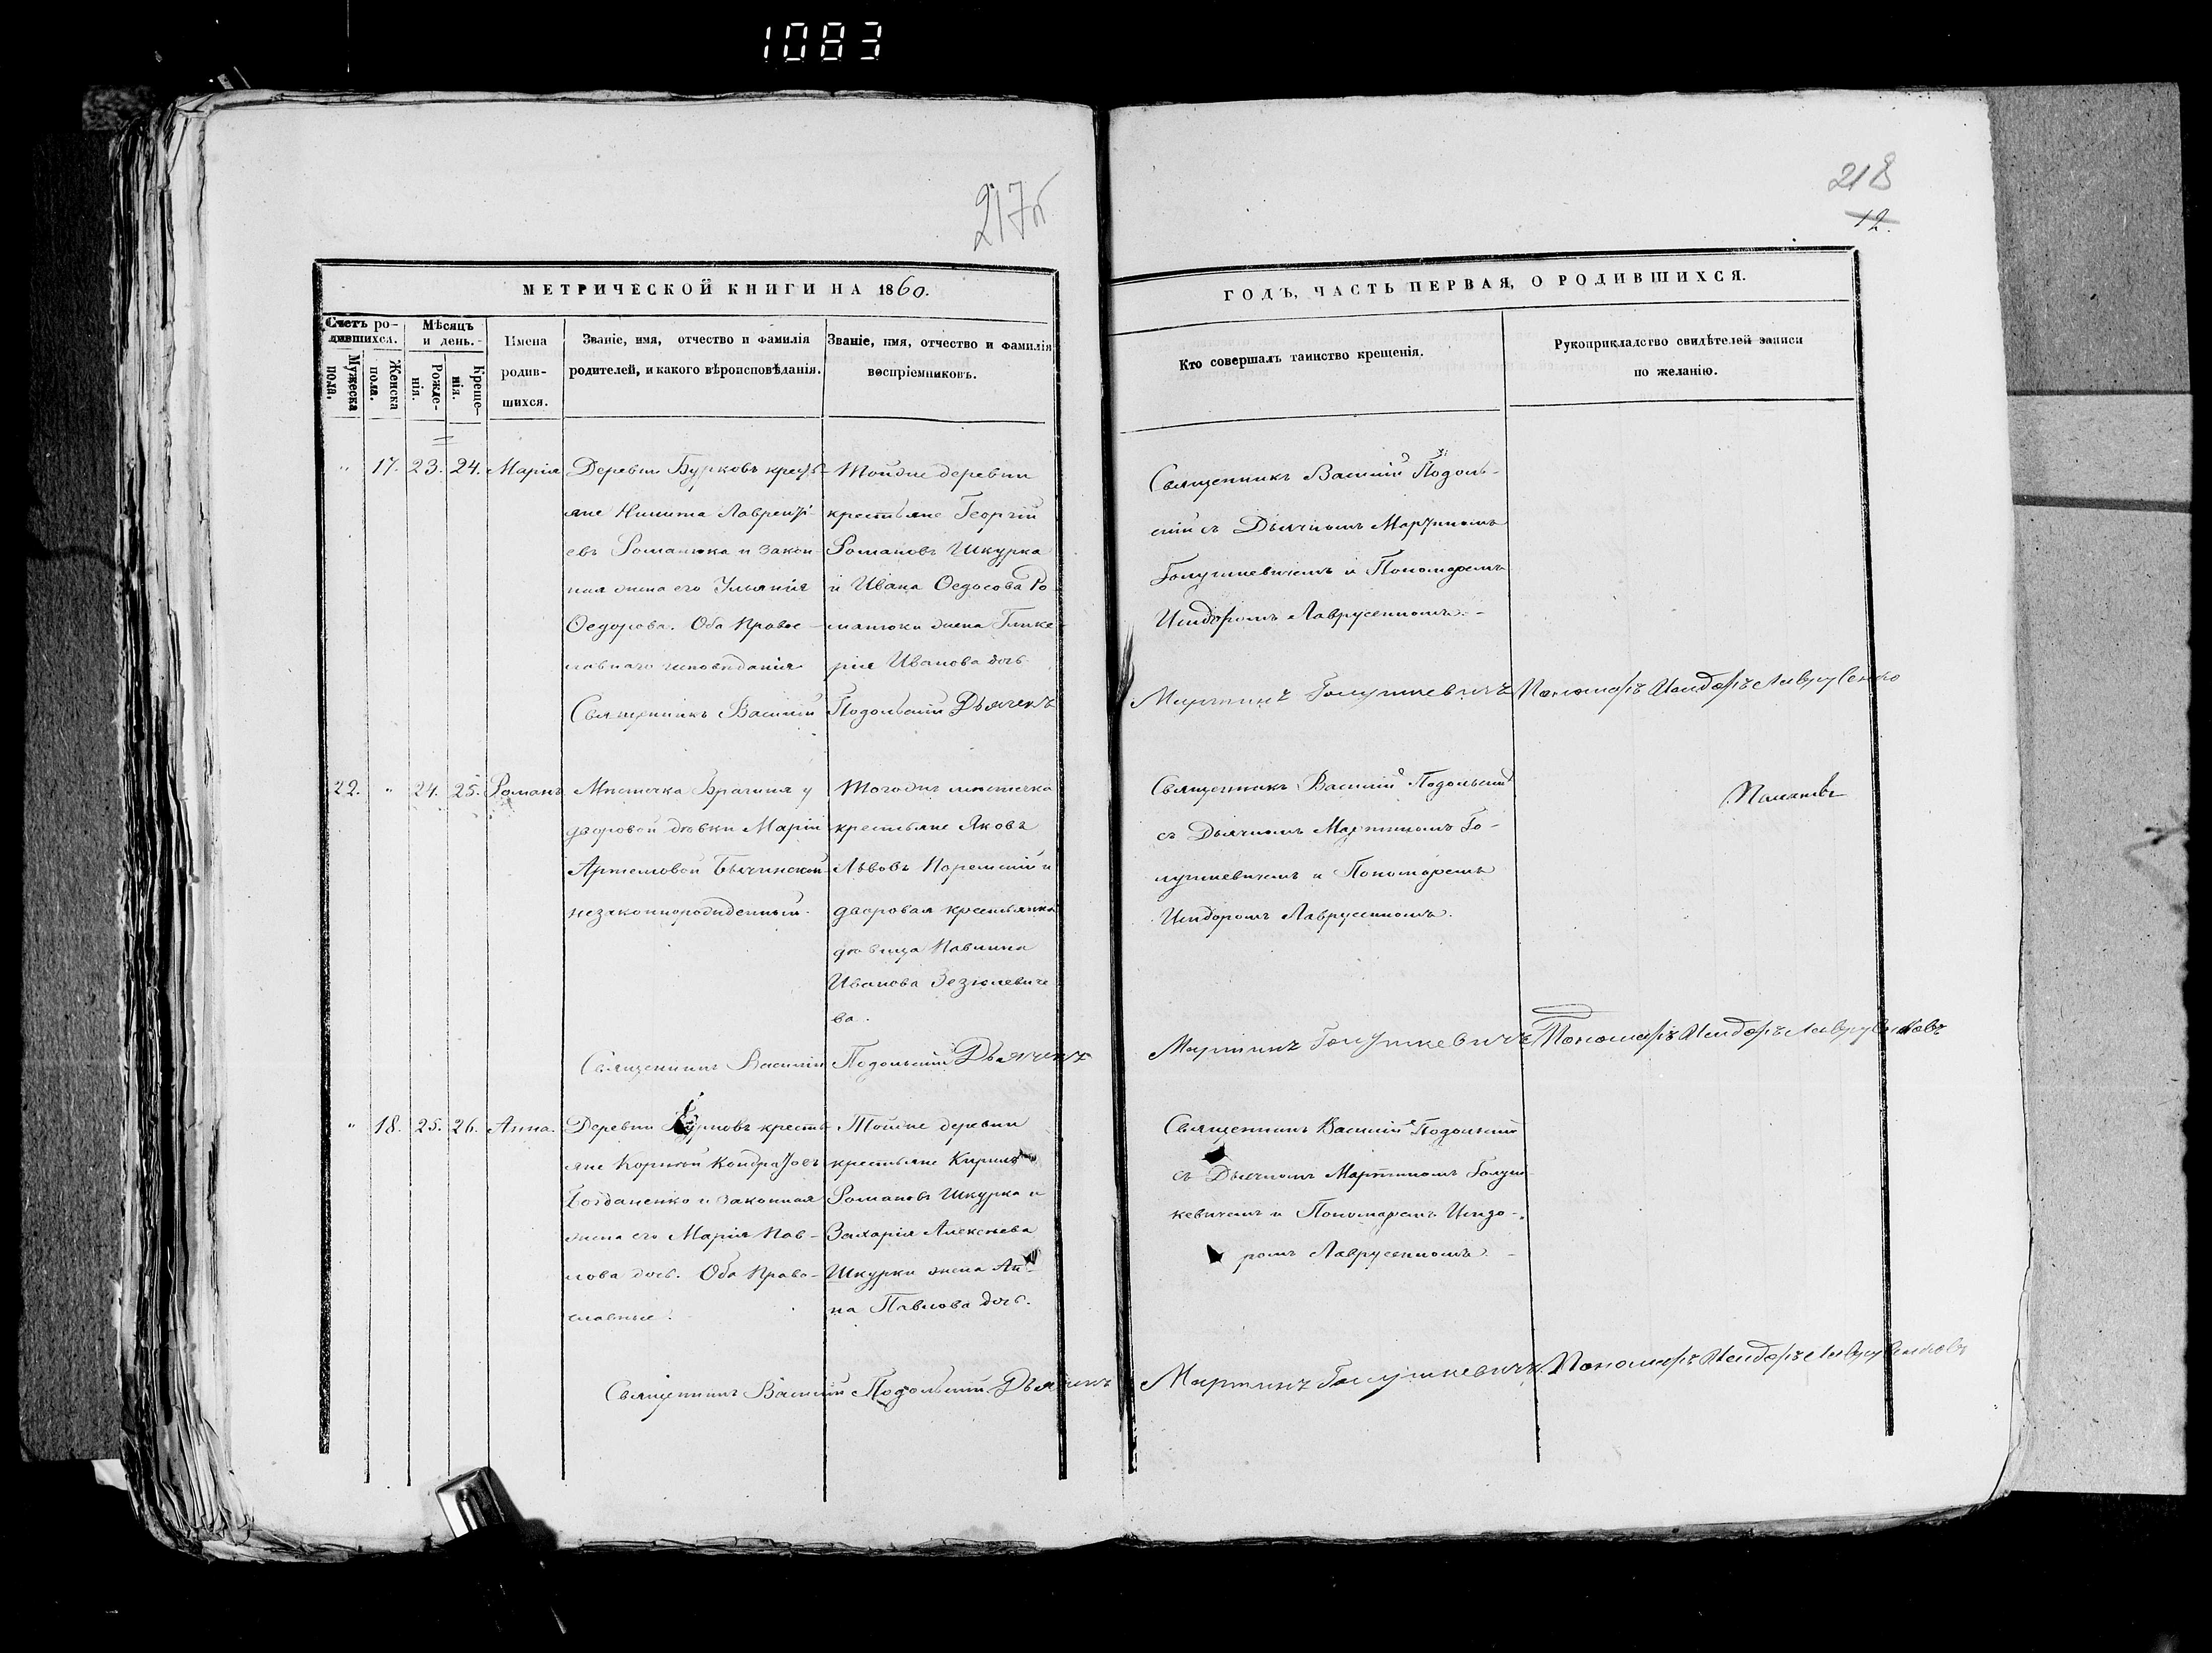 1083
217б
218
12.
МЕТРИЧЕСКОЙ КНИГИ НА 1860.
Счетъ ро-
дившихся.
Мужеска пола.
Женска пола.
Мѣсяцъ
и день.
Рожде-
нія.
Креще-
нія.
Имена
родив-
шихся.
Званіе, имя, отчество и фамилія
родителей, и какого вѣроисповѣданія.
Званіе, имя, отчество и фамилія
воспріемниковъ.
ГОДЪ, ЧАСТЬ ПЕРВАЯ, О РОДИВШИХСЯ.
Кто совершалъ таинство крещенія.
Рукоприкладство свидѣтелей записи
по желанію.
" 17. 23. 24. Марія
Деревни Бурковъ кресть-
яне Никита Лавренті-
евъ Романюка и закон-
ная жена его Ульянія
Ѳедорова. Оба Правос-
лавнаго исповѣданія
Тойже деревни
крестьяне Георгій
Романовъ Шкурка
и Ивана Ѳедосова Ро-
манюки жена Глике-
рія Иванова дочь
Священникъ Василій Подоль-
скій съ Дьячкомъ Мартиномъ
Голушкевичемъ и Пономаремъ
Исидоромъ Лаврусенкомъ.-
Священникъ Василій Подольскій Дьячекъ Мартинъ Голушкевичъ Пономарь Исидоръ Лаврусенко
22. " 24. 25. Романъ
Мѣстечка Брагиня у
дворовой дѣвки Маріи
Артемовой Бычинской
незаконнорожденный.
Тогоже мѣстечка
крестьяне Яковъ
Львовъ и
дворовая крестьянка
дѣвица Павлина
Иванова Зезюлевиче
ва.
Священникъ Василій Подольскій
съ Дьячкомъ Мартиномъ Го-
лушкевичемъ и Пономаремъ
Исидоромъ Лаврусенкомъ.
Священникъ Василій Подольскій Дьячекъ Мартинъ Голушкевичъ Пономарь Исидоръ Лаврусенковъ
" 18. 25. 26. Анна.
Деревни Бурковъ кресть-
яне Корнѣй Кондратовъ
Богданенко и законная
жена его Марія Пав-
лова дочь. Оба Право-
славные.
Тойже деревни
крестьяне Кирилъ
Романовъ Шкурка и
Захарія Алексѣева
Шкурки жена Ан-
на Павлова дочь.
Священникъ Василій Подольскій
съ Дьячкомъ Мартиномъ Голуш
кевичемъ и Пономаремъ Исидо-
ромъ Лаврусенкомъ.-
Священникъ Василій Подольскій Дьячекъ Мартинъ Голушкевичъ. Пономарь Исидоръ Лаврусенковъ